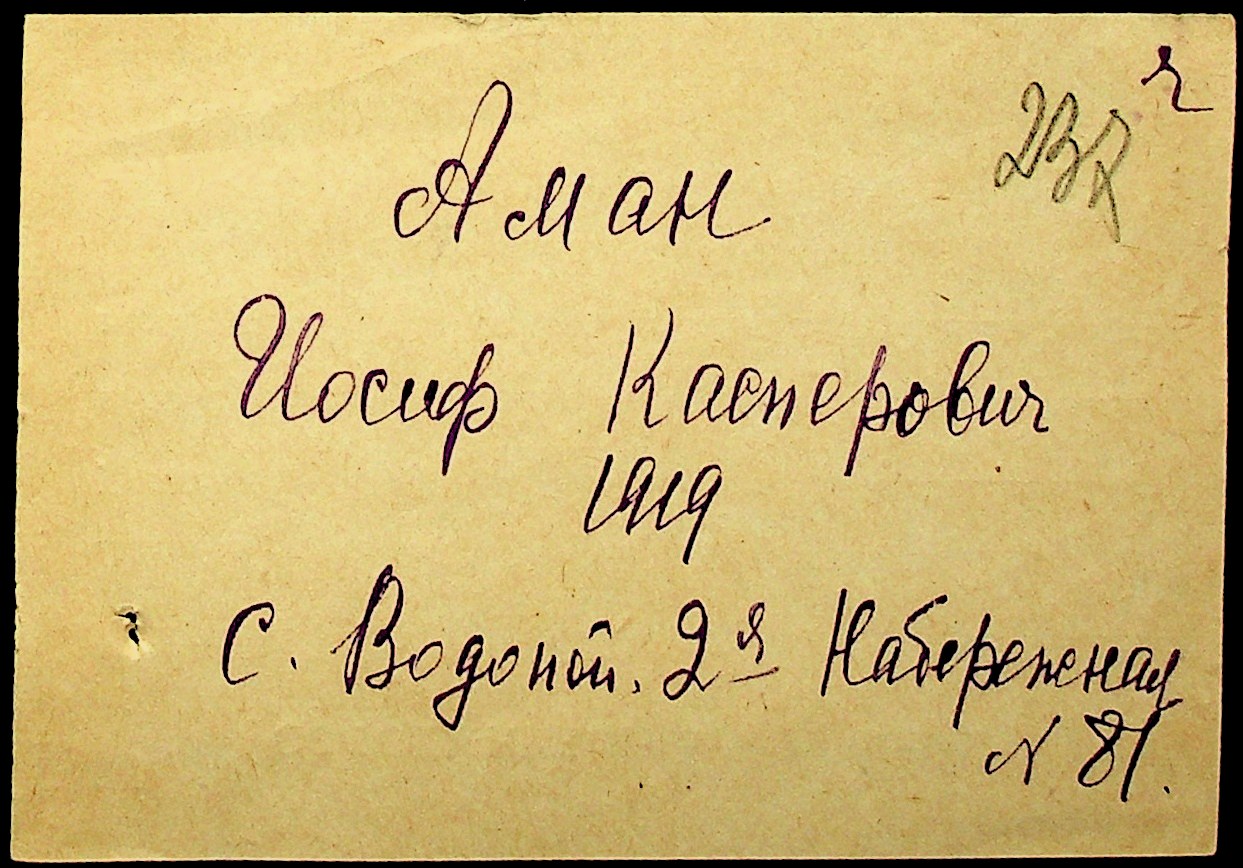 ч
237
Аман
Иосиф Касперович
1919
с. Водопой. 2я Набережная
N 81.